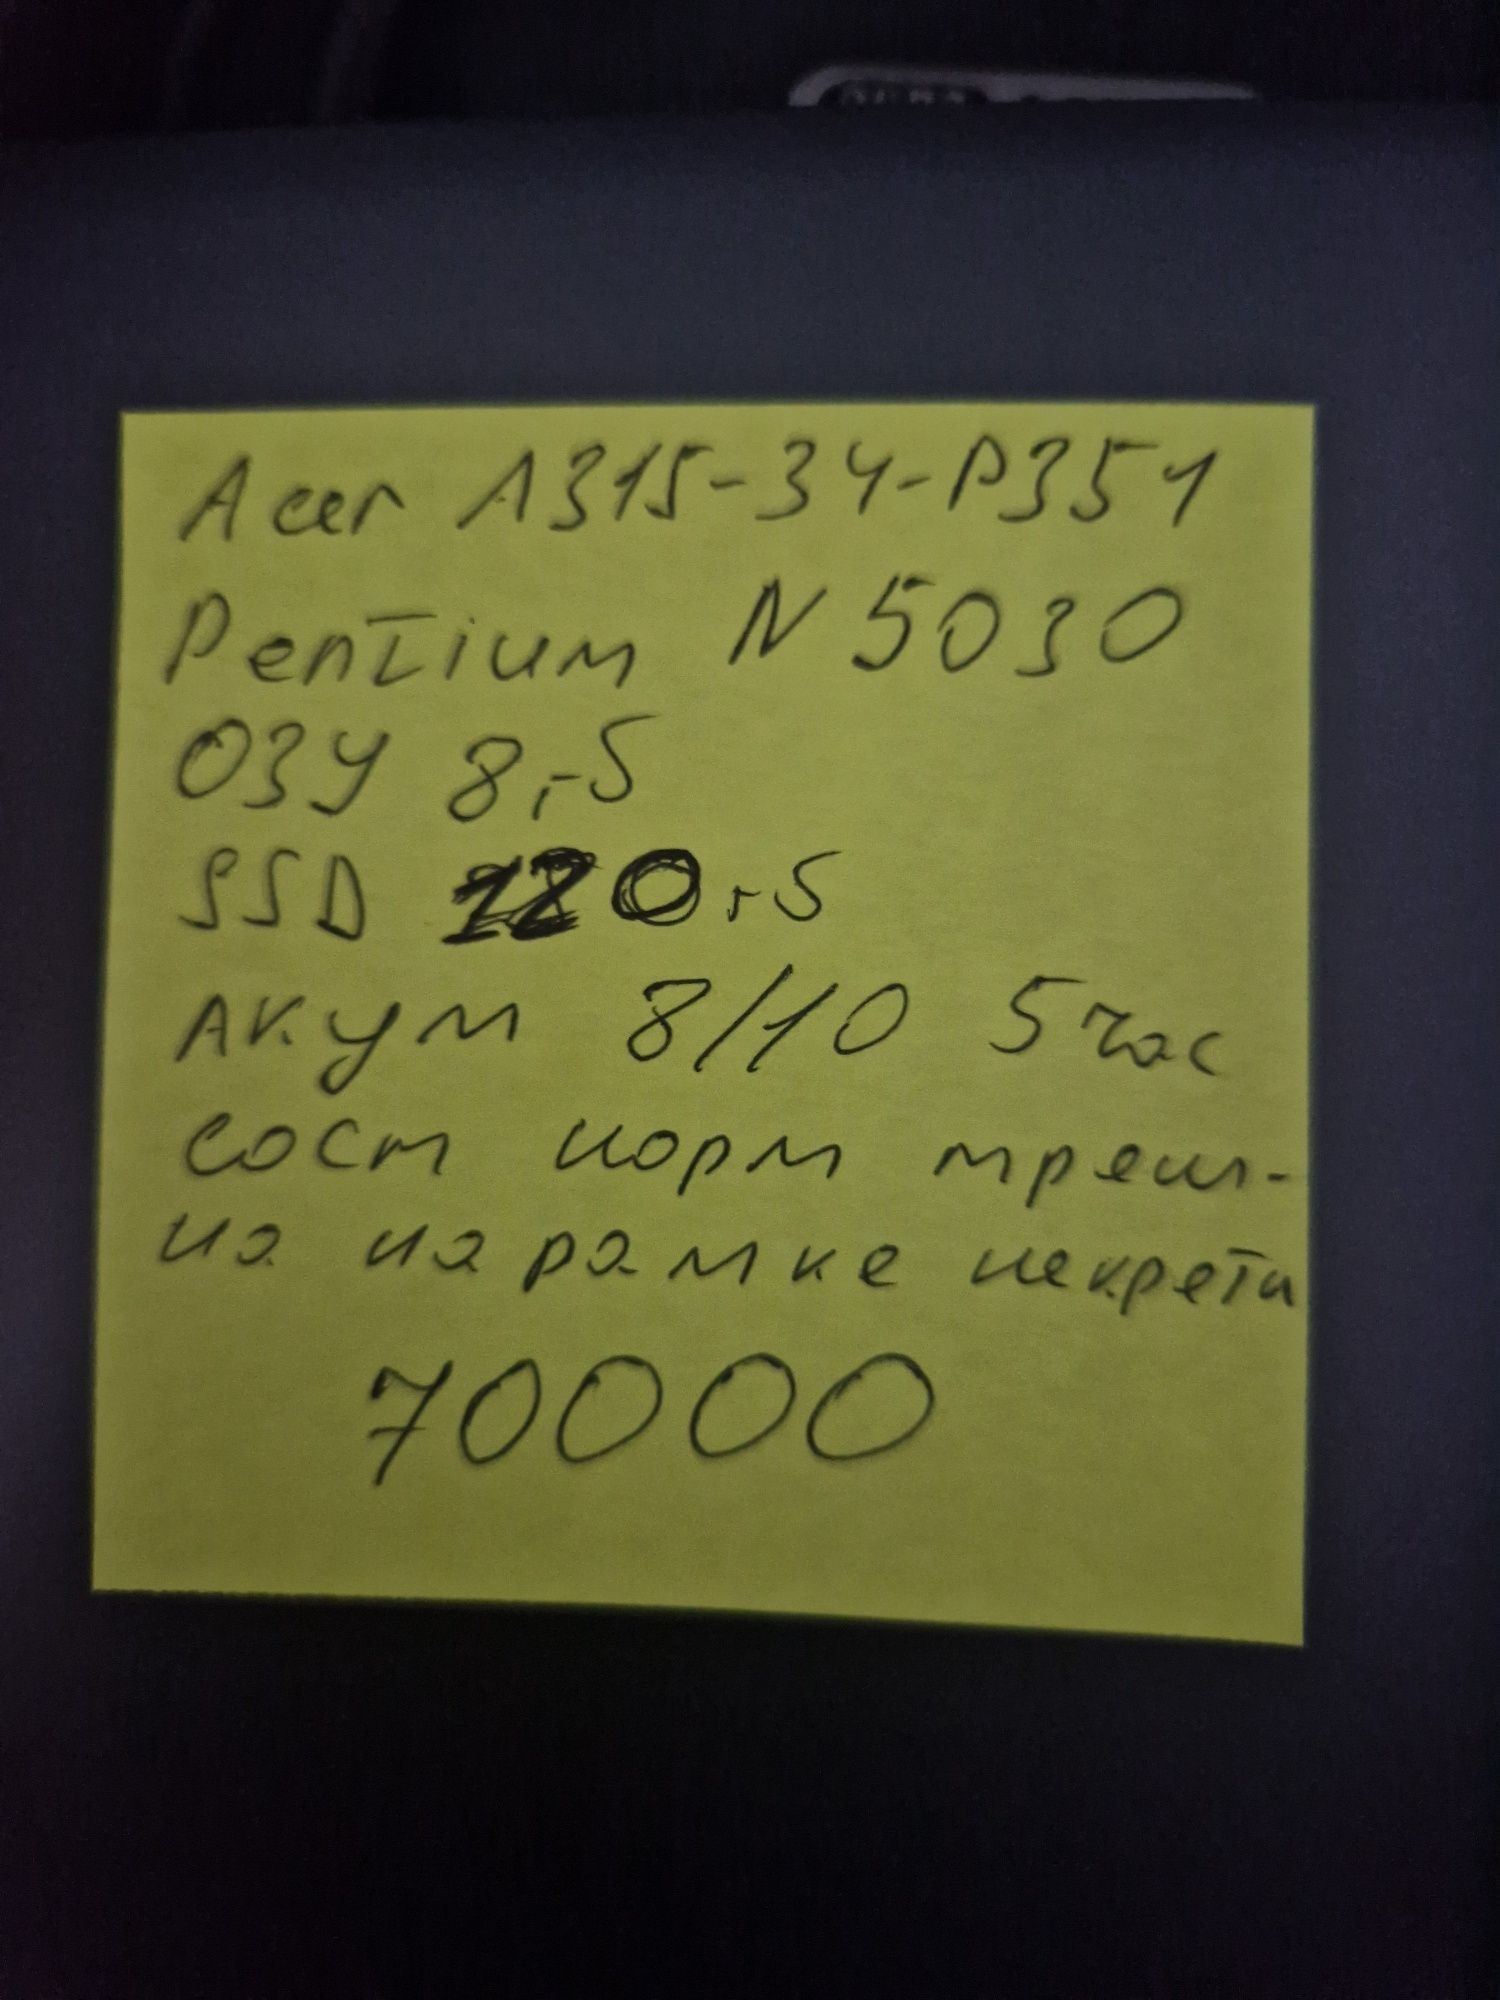 Acer A315-34-P351
Pentium N5030
ОЗУ 8гб
SSD 120гб
Акум 8/10 5 час
сост норм трещи-
на на рамке некрети
70000